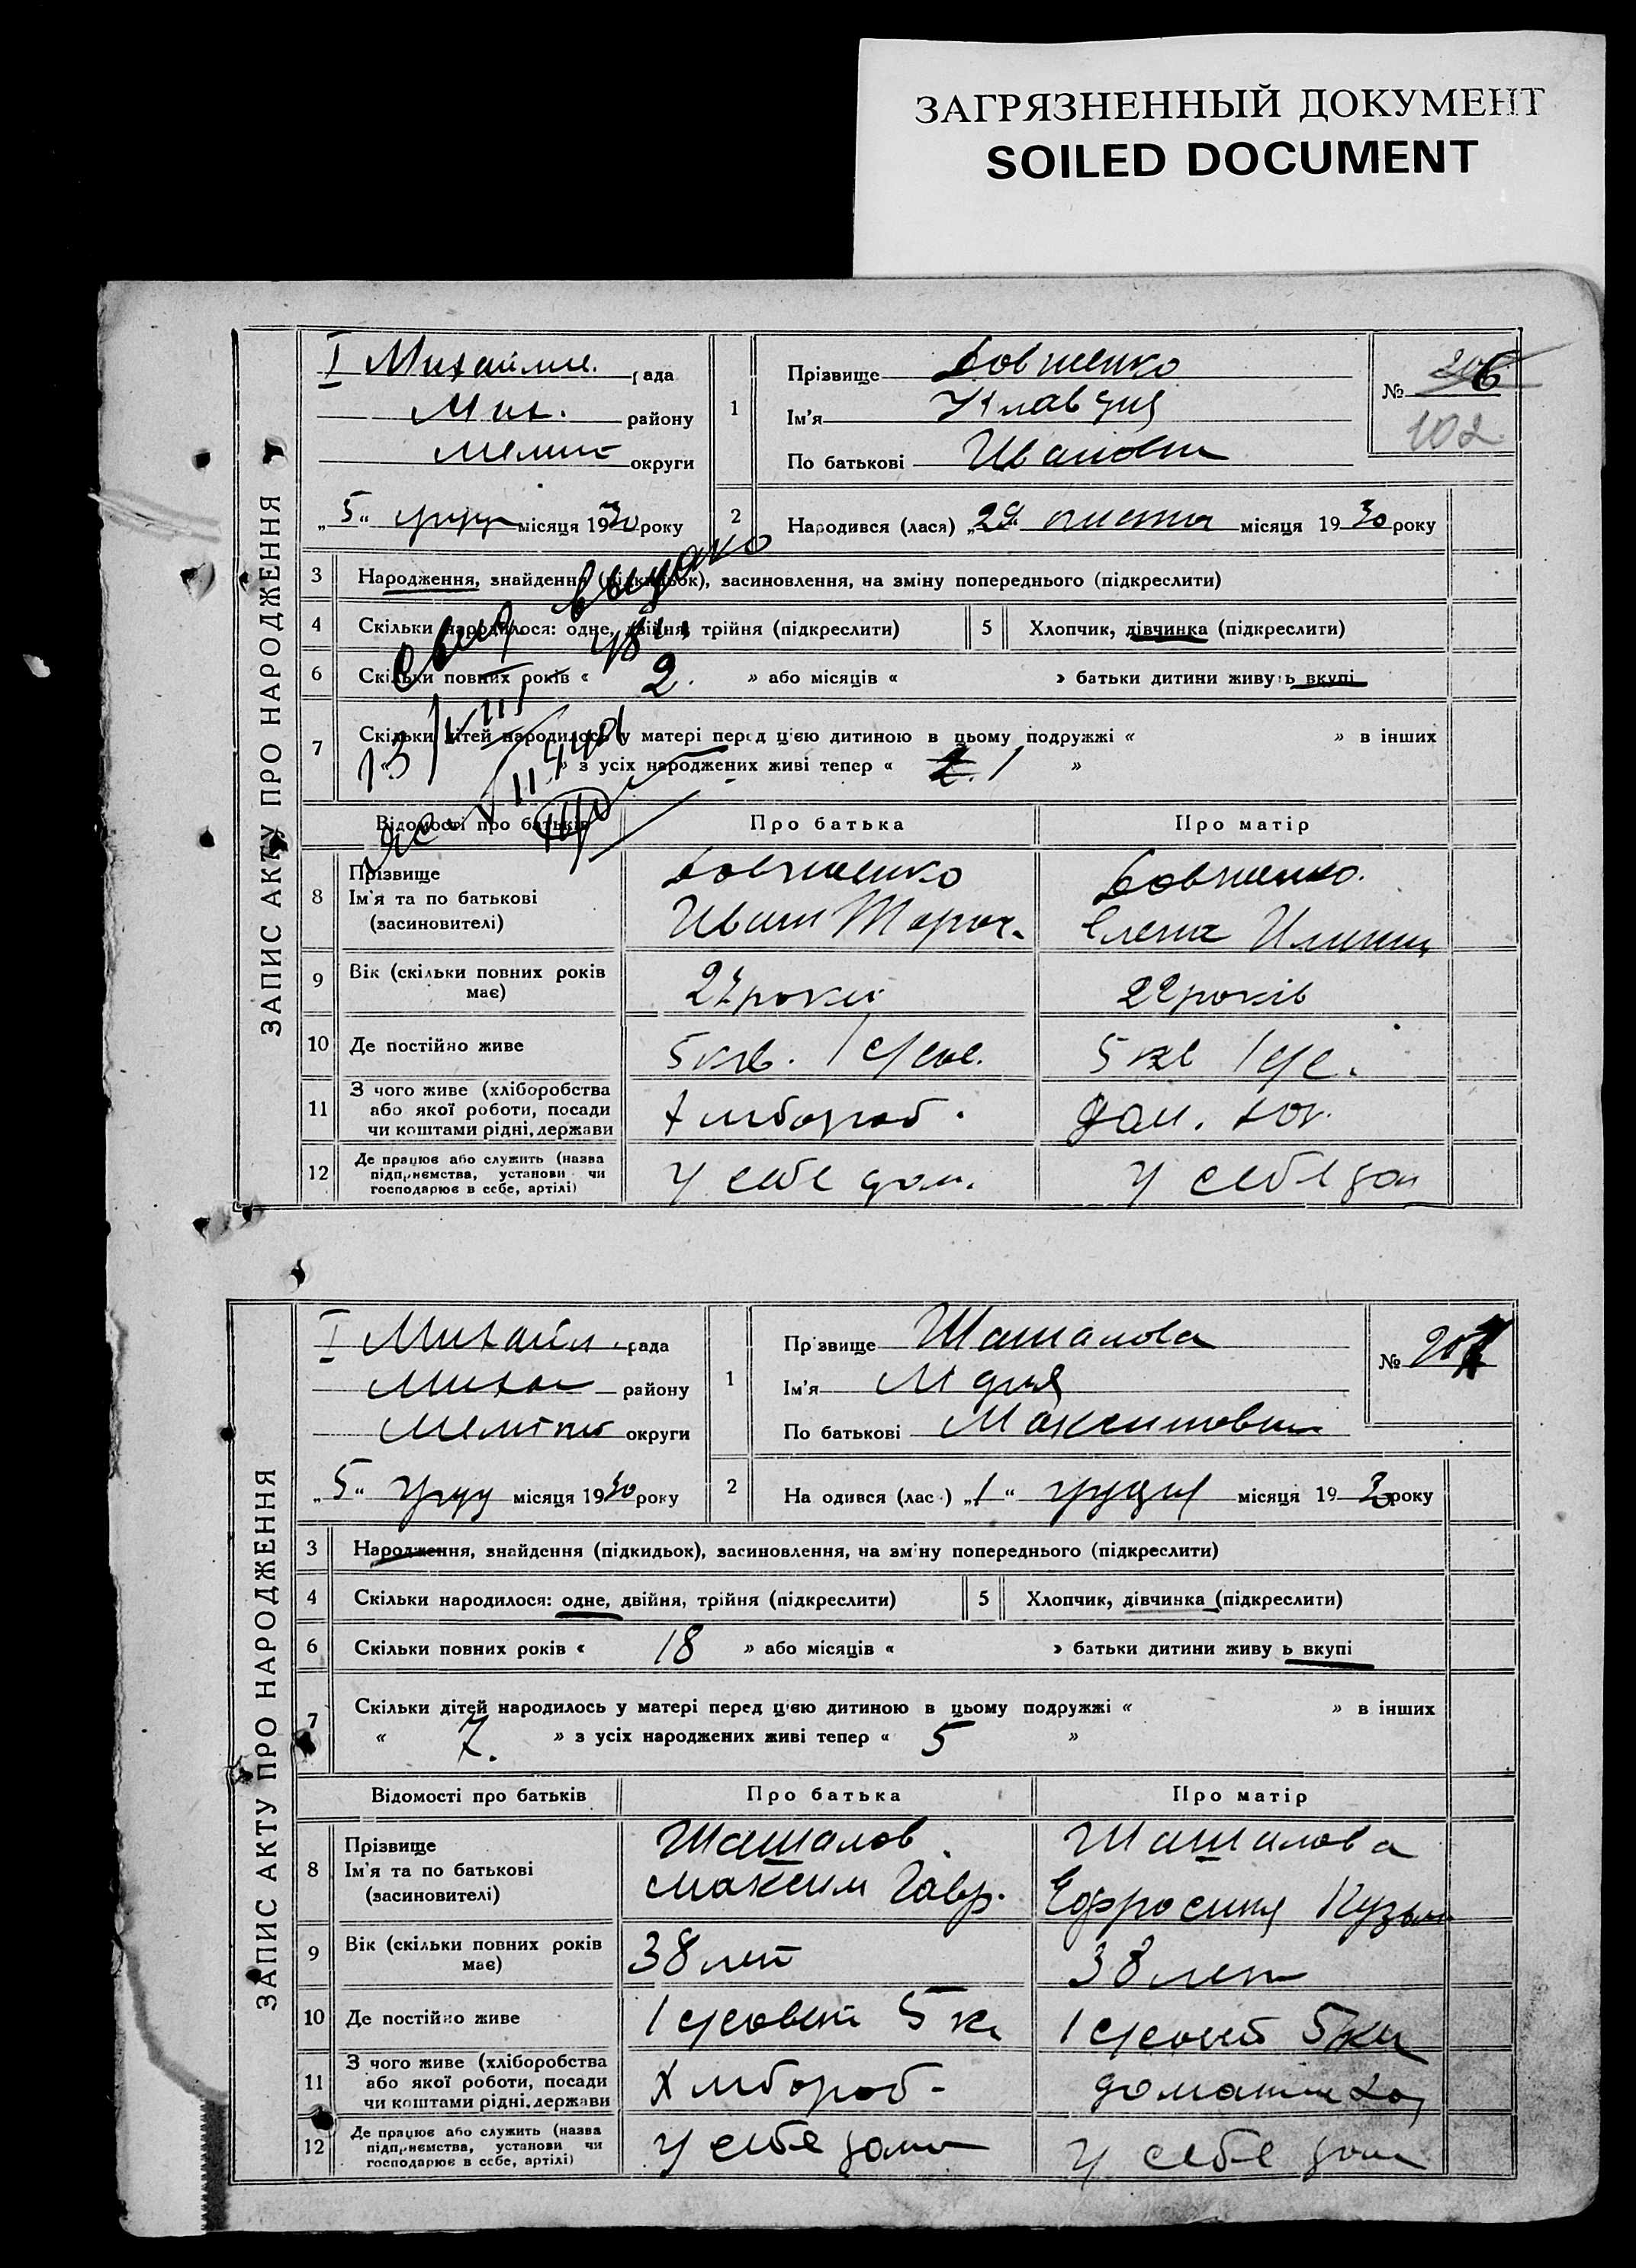 ЗАГРЯЗНЕННЫЙ ДОКУМЕНТ
SOILED DOCUMENT
ЗАПИС АКТУ ПРО НАРОДЖЕННЯ
I Михайлив. рада
Мих. району
округи
„5“ місяця 1930 року
1
Прізвище Довженко
Ім'я Клавдия
По батькові Ивановн
№ 206
102
2 Народився (лася) „29“ листоп місяця 1930 року
3 Народження, знайдення (підкидьок), засиновлення, на зміну попереднього (підкреслити)
4 Скільки народилося: одне, двійня, трійня (підкреслити) 5 Хлопчик, дівчинка (підкреслити)
6 Скільки повних років « 2. » або місяців « » батьки дитини живуть вкупі
7 Скільки дітей народилось у матері перед цією дитиною в цьому подружжі « » в інших
« » з усіх народжених живі тепер « 1 »
Відомості про батьків Про батька Про матір
8 Прізвище
Ім'я та по батькові
(засиновителі)
Довженко
Иван
Довженко.
Елена
9 Вік (скільки повних років має) 22 років
10 Де постійно живе 5 кв. 1 с/сов. 5 кв 1 с/с.
11 З чого живе (хліборобства або якої роботи, посади чи коштами рідні, держави Хлібороб. Дом. хоз.
12 Де працює або служить (назва підприємства, установи чи господарює в себе, артілі) У себе дом. У себе дом
ЗАПИС АКТУ ПРО НАРОДЖЕННЯ
I Михайл. рада
району
округи
„5“ груд місяця 1930 року
1
Прізвище Шашалова
Ім'я
По батькові Максимовна
№ 207
2 На одився (лас ) „1“ грудня місяця 1930 року
3 Народження, знайдення (підкидьок), засиновлення, на зміну попереднього (підкреслити)
4 Скільки народилося: одне, двійня, трійня (підкреслити) 5 Хлопчик, дівчинка (підкреслити)
6 Скільки повних років « 18 » або місяців « » батьки дитини живу ь вкупі
7 Скільки дітей народилось у матері перед цією дитиною в цьому подружжі « » в інших
« 7. » з усіх народжених живі тепер « 5 »
Відомості про батьків Про батька Про матір
8 Прізвище
Ім'я та по батькові
(засиновителі)
Шашалов
Максим Гавр.
Шашалова
Ефросиния Кузьм
9 Вік (скільки повних років має) 38 лет 38 лет
10 Де постійно живе 1 с/совет 5 кв 1 с/совет 5 кв
11 З чого живе (хліборобства або якої роботи, посади чи коштами рідні, держави Хлібороб- домашн хоз
12 Де працює або служить (назва підприємства, установи чи господарює в себе, артілі) У себе дома У себе дома